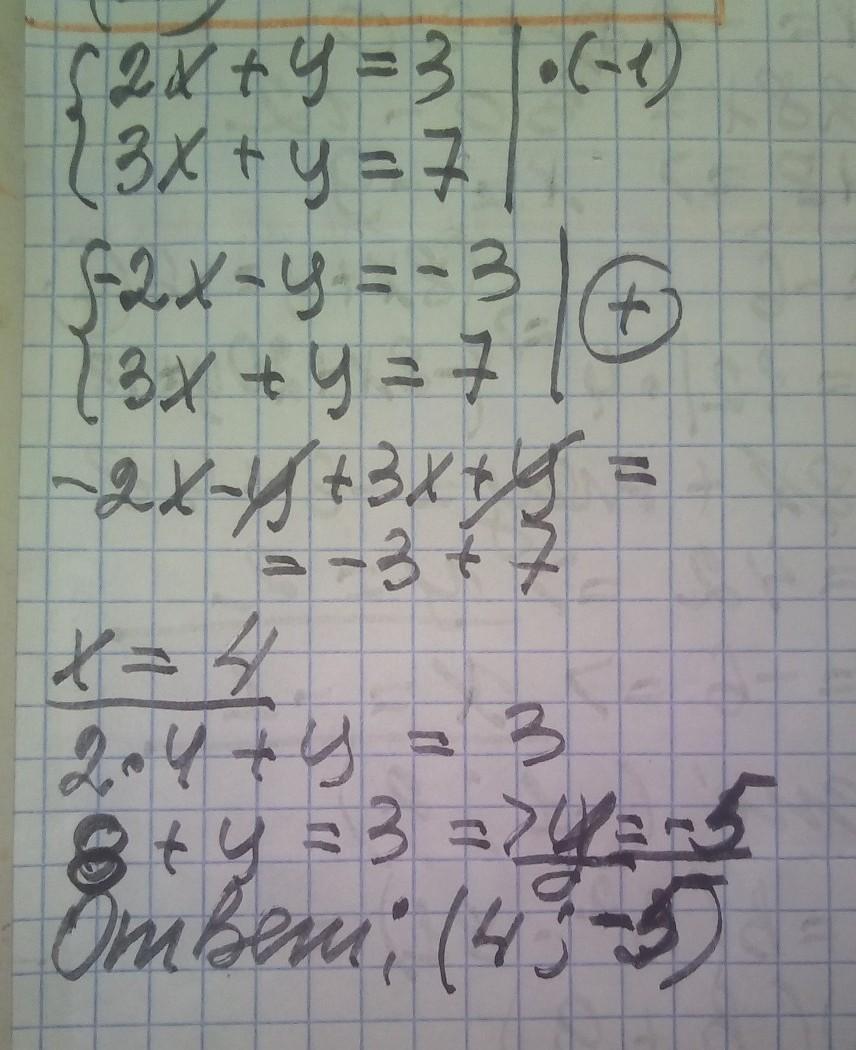 {2x + y = 3 | · (-1)
{3x + y = 7 |
{-2x - y = - 3 | +
{3x + y = 7 |
-2x - y + 3x + y =
= -3 + 7
x = 4
2 · 4 + y = 3
8 + y = 3 => y = -5
Ответ: (4; -5)